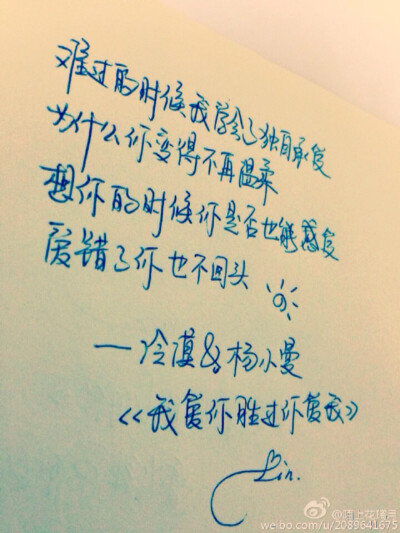 难过的时候我学会了独自承受
为什么你变得不再温柔
想你的时候你是否也能感受
爱错了你也不回头
—冷漠&杨小曼
《我爱你胜过你爱我》
Lin.
weibo.com/u/2089641675